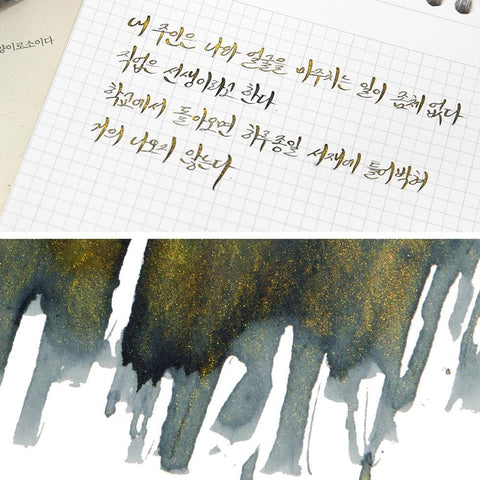 양이로소이다
내 주인은 나와 얼굴을 마주치는 일이 좀체 없다
직업은 선생이라고 한다.
학교에서 돌아오면 하루종일 서재에 틀어박혀
거의 나오지 않는다